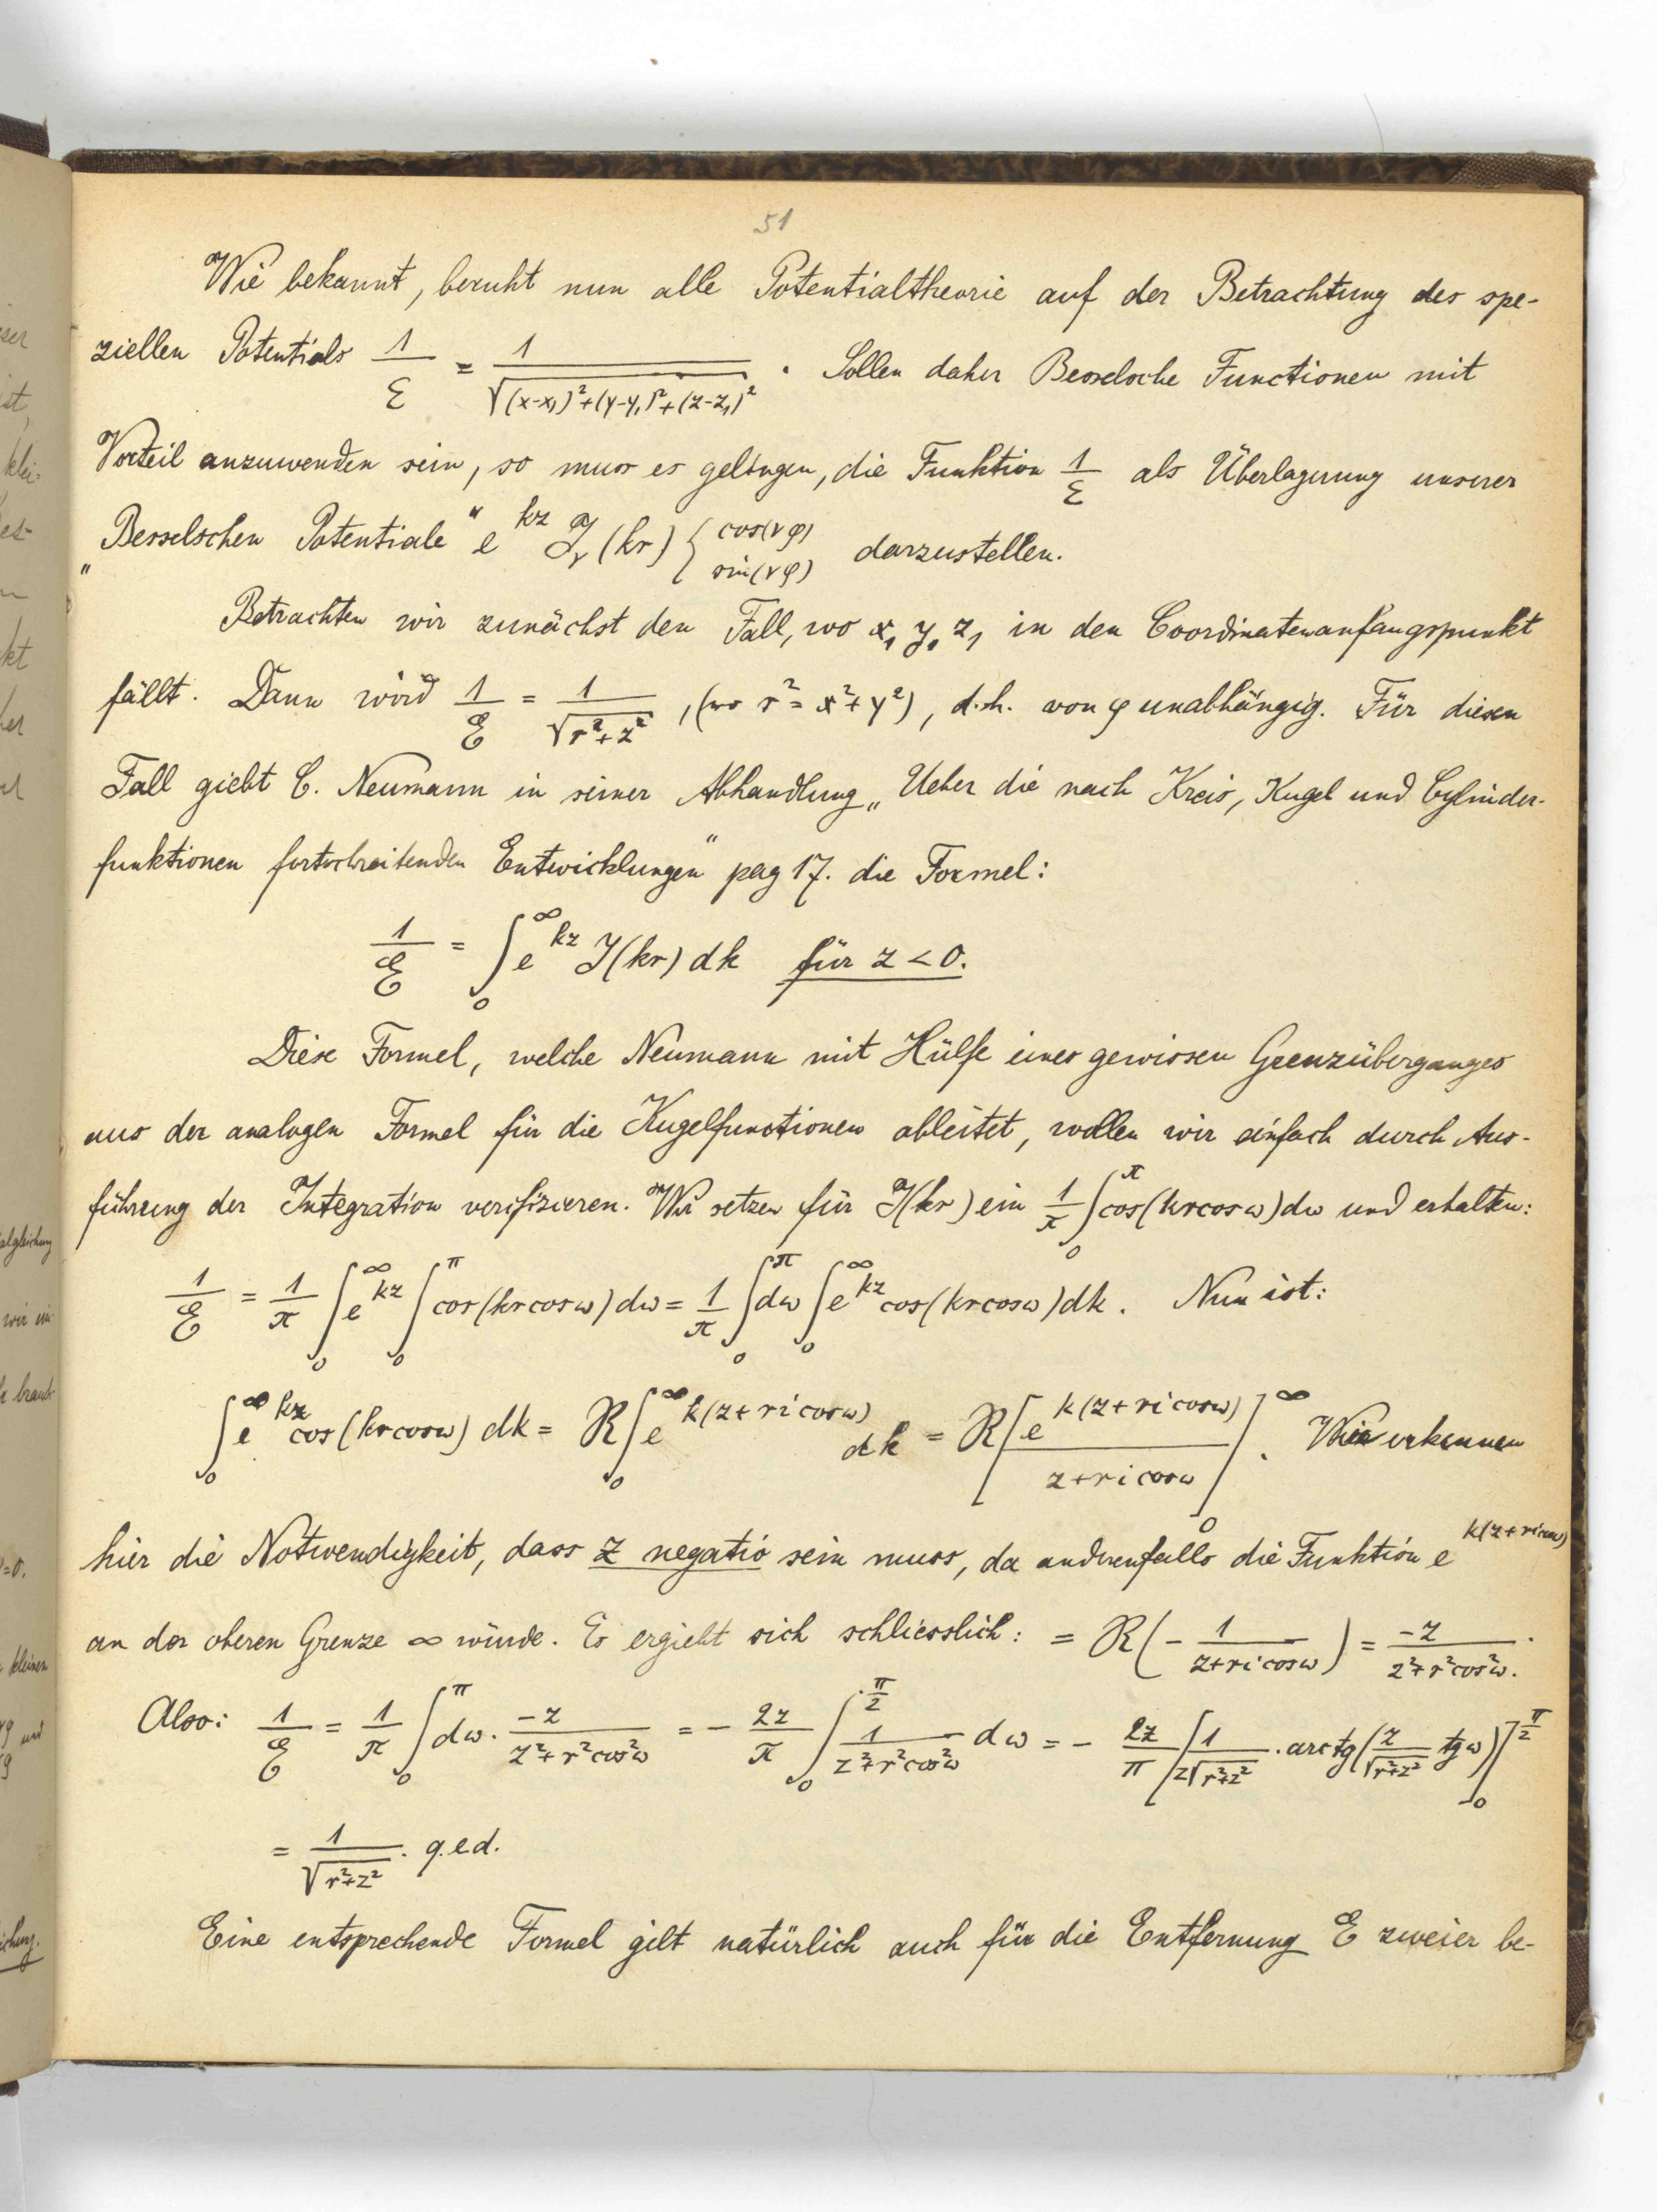 51
Wie bekannt, beruht nun alle Potentialtheorie auf der Betrachtung des spe-
ziellen Potentials 1/E = 1/√((x-x₁)²+(y-y₁)²+(z-z₁)²). Sollen daher Besselsche Functionen mit
Vorteil anzuwenden sein, so muss es gelingen, die Funktion 1/E als Überlagerung unserer
„Besselschen Potentiale“ e^{kz} J_ν(kr) { cos(νφ) sin(νφ) darzustellen.
Betrachten wir zunächst den Fall, wo x₁ y₁ z₁ in den Coordinatenanfangspunkt
fällt. Dann wird 1/E = 1/√(r²+z²), (wo r² = x²+y²), d.h. von φ unabhängig. Für diesen
Fall giebt C. Neumann in seiner Abhandlung „Ueber die nach Kreis, Kugel und Cylinder-
funktionen fortschreitenden Entwicklungen“ pag 17. die Formel:
1/E = ∫₀^∞ e^{kz} J(kr) dk für z < 0.
Diese Formel, welche Neumann mit Hülfe eines gewissen Grenzüberganges
aus der analogen Formel für die Kugelfunctionen ableitet, wollen wir einfach durch Aus-
führung der Integration verifizieren. Wir setzen für J(kr) ein 1/π ∫₀^π cos(kr cos ω) dω und erhalten:
1/E = 1/π ∫₀^∞ e^{kz} ∫₀^π cos(kr cos ω) dω = 1/π ∫₀^π dω ∫₀^∞ e^{kz} cos(kr cos ω) dk. Nun ist:
∫₀^∞ e^{kz} cos(kr cos ω) dk = R ∫₀^∞ e^{k(z+ri cos ω)} dk = R [e^{k(z+ri cos ω)}/(z+ri cos ω)]₀^∞. Wir erkennen
hier die Notwendigkeit, dass z negativ sein muss, da anderenfalls die Funktion e^{k(z+ri cos ω)}
an der oberen Grenze ∞ würde. Es ergiebt sich schliesslich: = R(- 1/(z+ri cos ω)) = -z/(z²+r² cos² ω).
Also: 1/E = 1/π ∫₀^π dω · -z/(z²+r² cos² ω) = - 2z/π ∫₀^{π/2} 1/(z²+r² cos² ω) dω = - 2z/π [1/(z√(r²+z²)) · arc tg(z/√(r²+z²) tg ω)]₀^{π/2}
= 1/√(r²+z²). q.e.d.
Eine entsprechende Formel gilt natürlich auch für die Entfernung E zweier be-